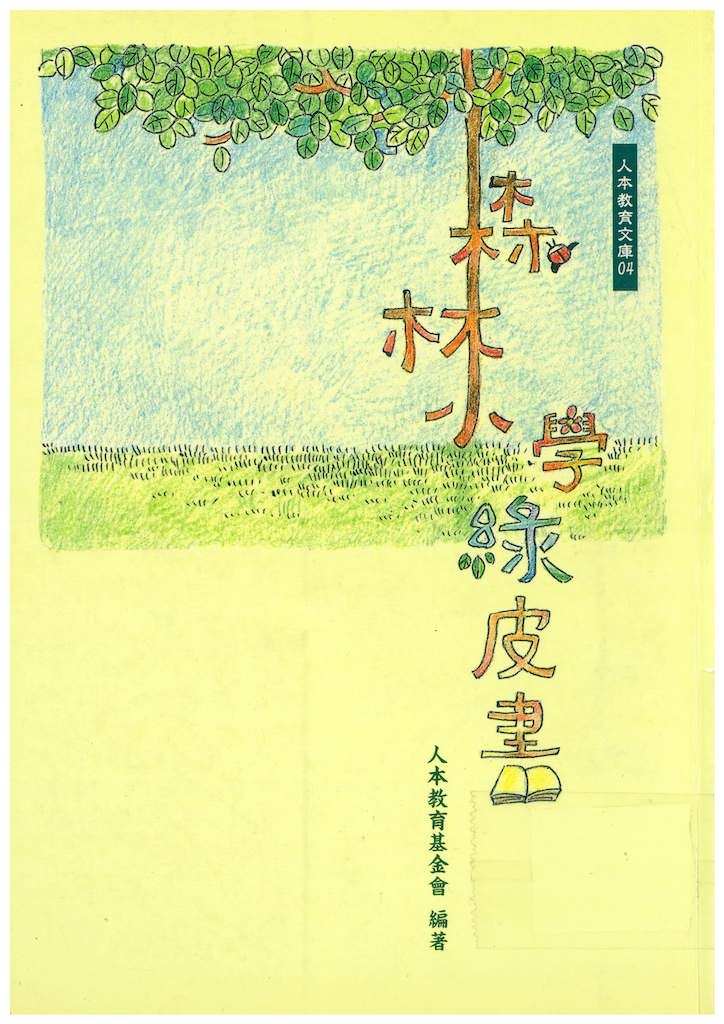 人本教育文庫04
森林小學綠皮書
人本教育基金會 編著